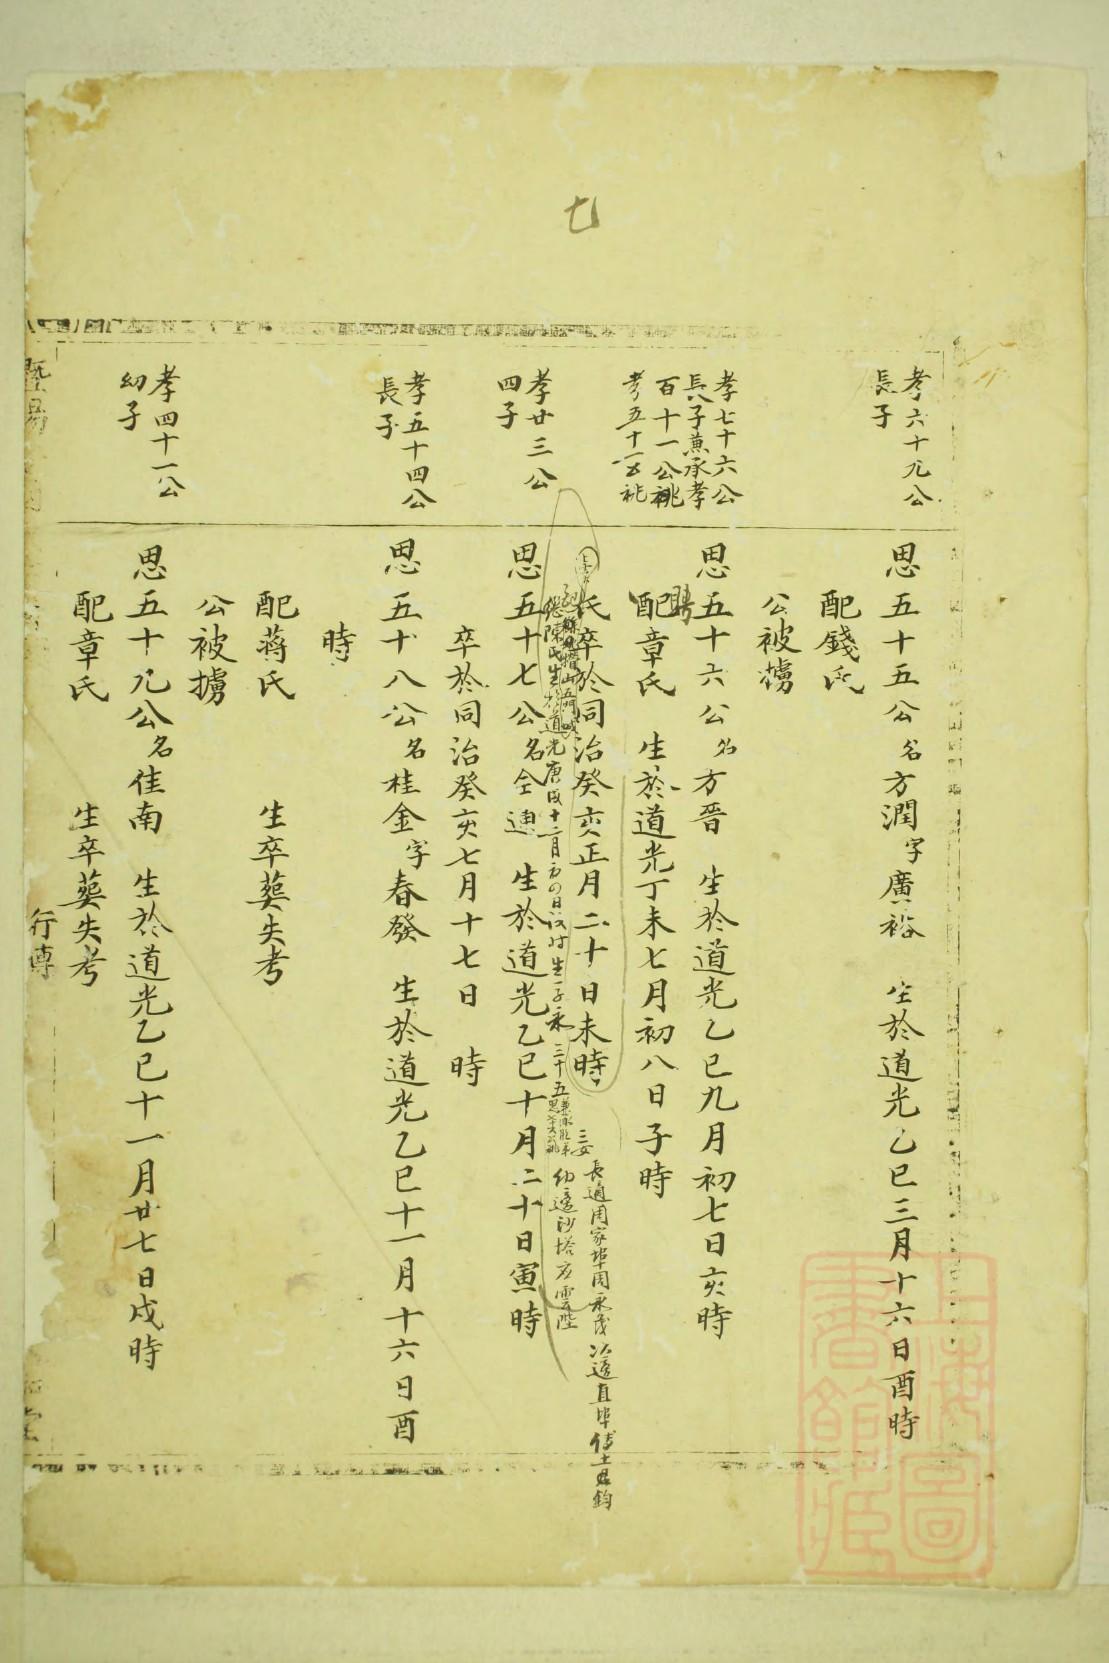 七
孝六十九公
長子
思五十五公名方潤字廣裕 生於道光乙巳三月十六日酉時
配錢氏
公被擄
孝七十六公
長子兼承孝
百十一公祧
思五十六公名方晋 生於道光乙巳九月初七日亥時
聘
配章氏 生於道光丁未七月初八日子時
氏卒於同治癸亥正月二十日未時
繼陳氏生於道光庚戌十二月初四日 時生一子永三十五
三女
長適周家埠周永茂 次適直埠傅士鈞
幼適沙塔 雲陛
孝廿三公
四子
思五十七公名仝連 生於道光乙巳十月二十日寅時
卒於同治癸亥七月十七日 時
孝五十四公
長子
思五十八公名桂金字春發 生於道光乙巳十一月十六日酉
時
配蔣氏 生卒葬失考
公被擄
孝四十一公
幼子
思五十九公名佳南 生於道光乙巳十一月廿七日戌時
配章氏 生卒葬失考
暨易
行傳
堂
上海圖
書館藏